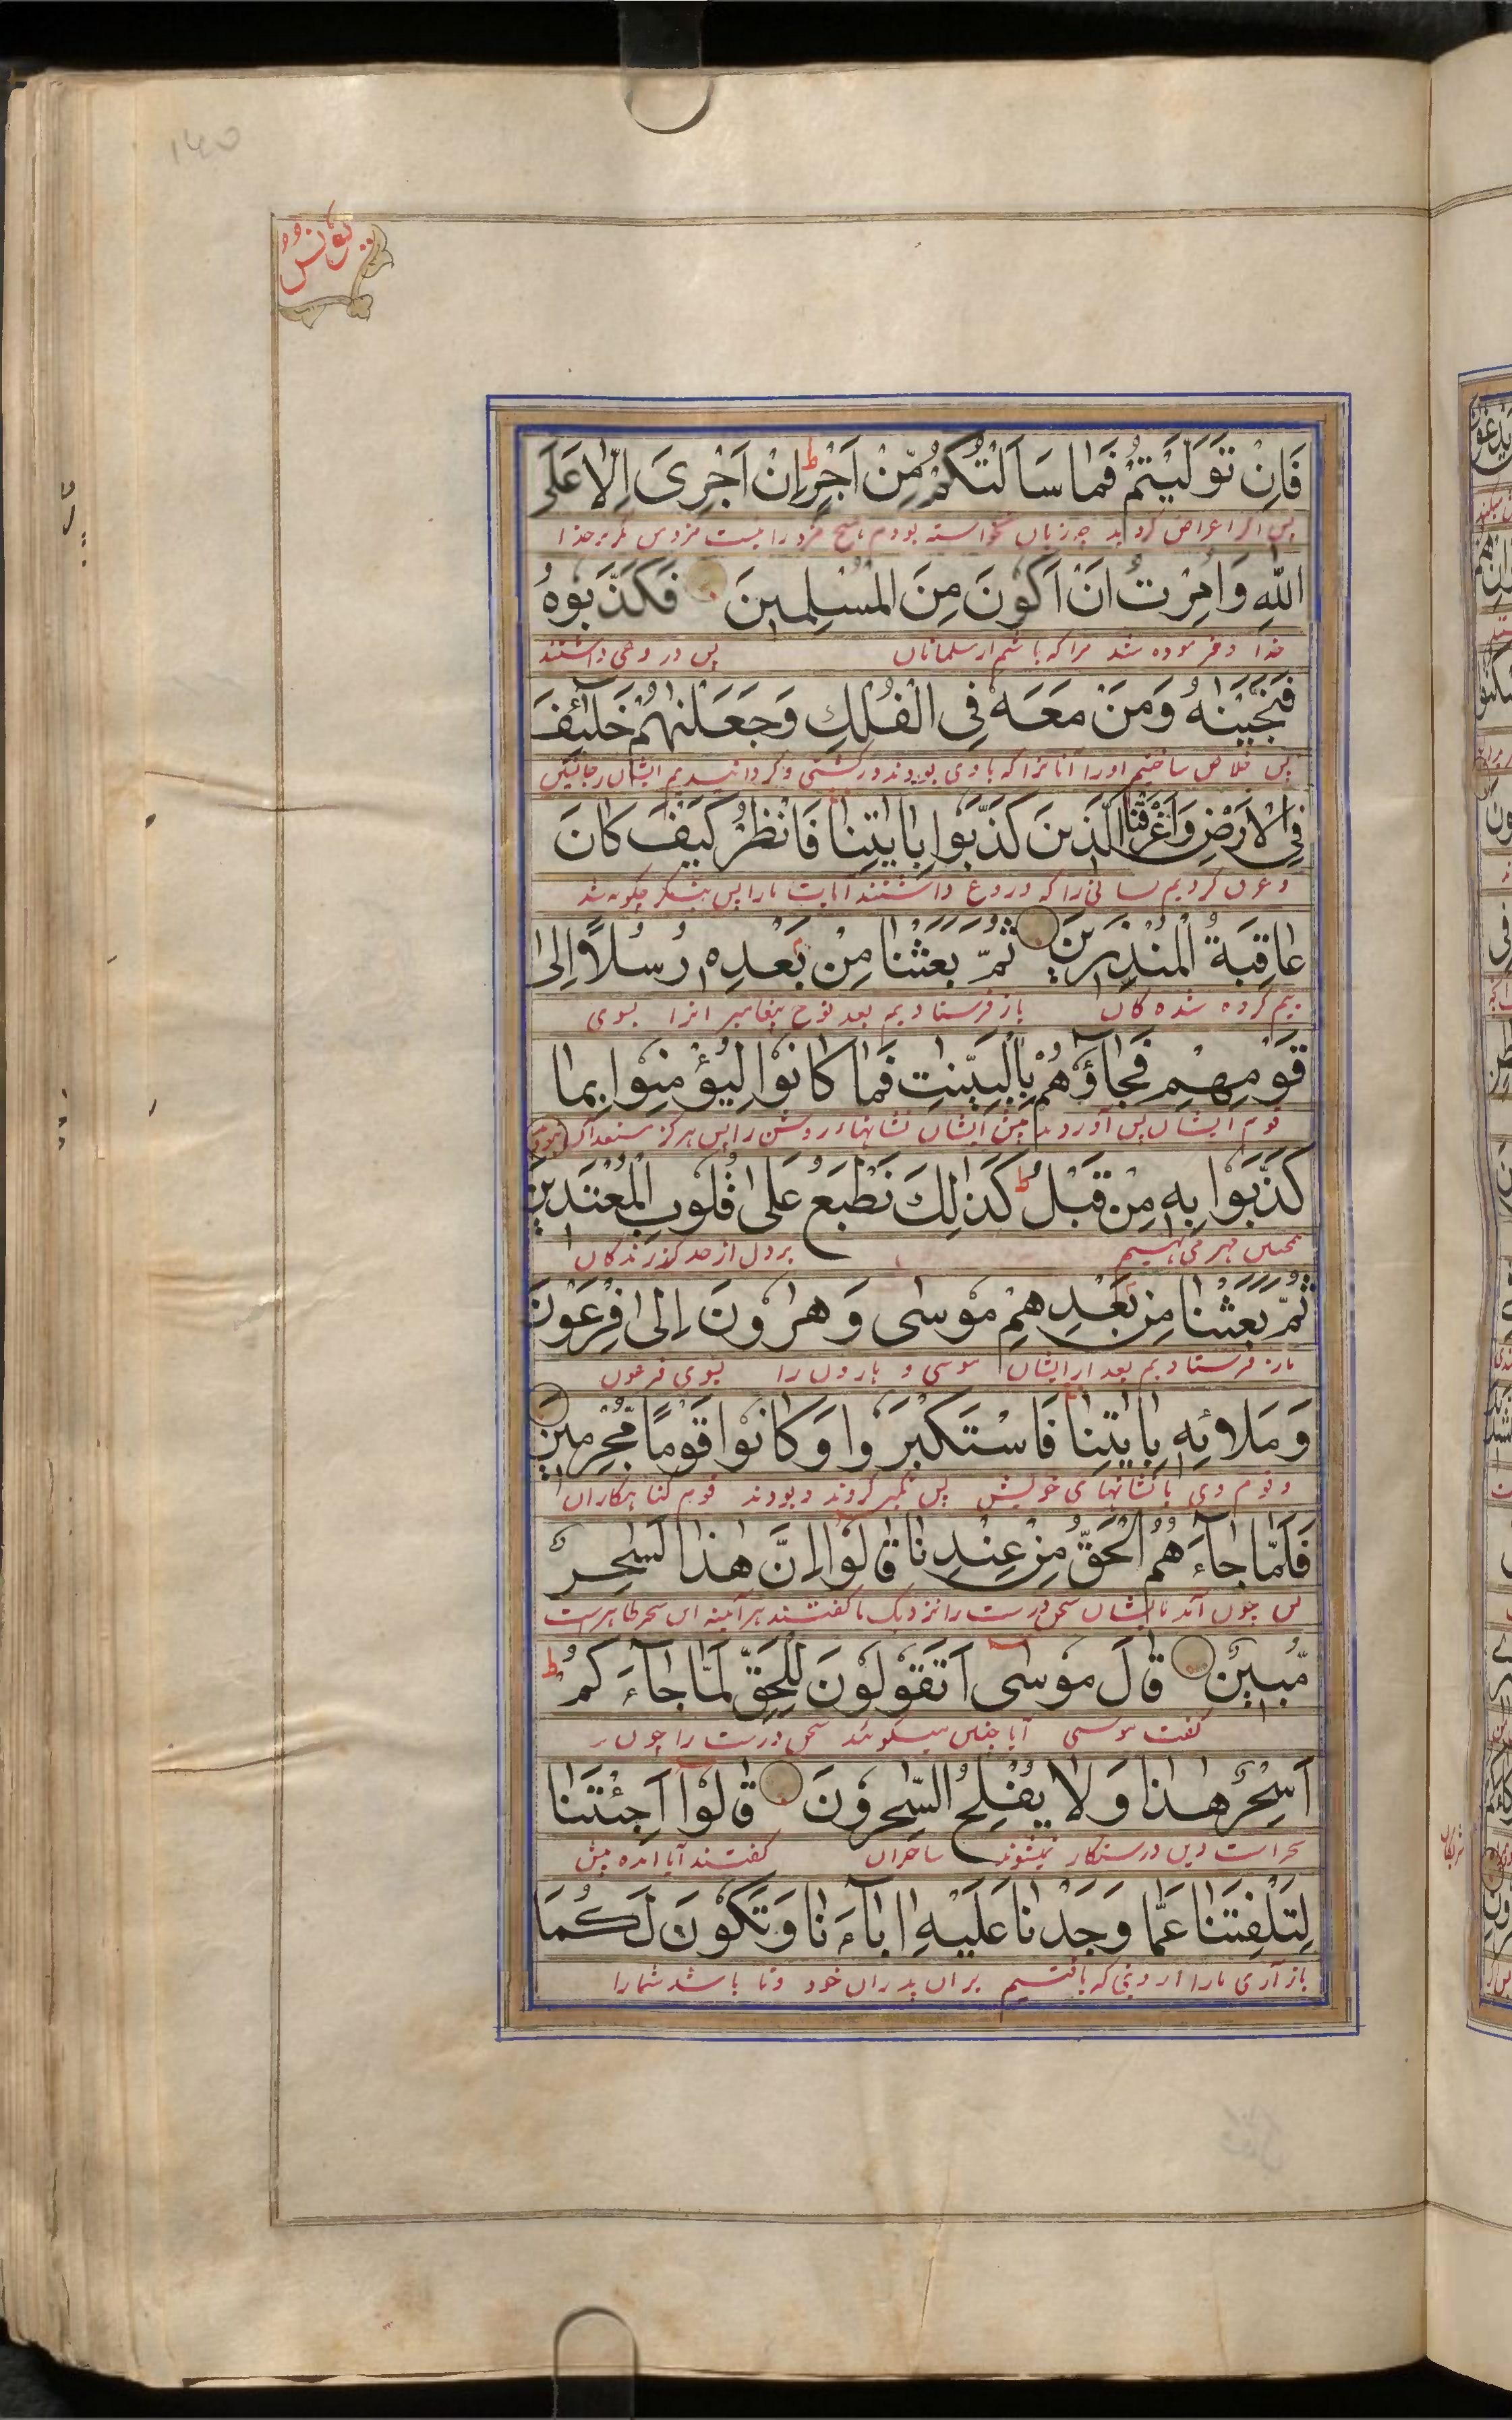 ۱۴۵
یونس
فَاِنْ تَوَلَّيْتُمْ فَمَا سَاَلْتُكُمْ مِّنْ اَجْرٍ ط اِنْ اَجْرِىَ اِلَّا عَلَى
پس اگر اعراض کردید چه زیان نخواسته بودم هیچ مزد را نیست مزد من مگر بر خدا
اللّٰهِ وَاُمِرْتُ اَنْ اَكُوْنَ مِنَ الْمُسْلِمِيْنَ فَكَذَّبُوْهُ
خدا و فرموده شد مرا که باشم از مسلمانان پس دروغی داشتند
فَنَجَّيْنٰهُ وَمَنْ مَّعَهٗ فِى الْفُلْكِ وَجَعَلْنٰهُمْ خَلٰٓئِفَ
پس خلاص ساختیم او را آنانرا که با وی بودند در کشتی و گردانیدیم ایشان را جانشین
فِى الْاَرْضِ وَاَغْرَقْنَا الَّذِيْنَ كَذَّبُوْا بِاٰيٰتِنَا فَانْظُرْ كَيْفَ كَانَ
و غرق کردیم کسانی را که دروغ داشتند آیات ما را پس بنگر چگونه شد
عَاقِبَةُ الْمُنْذَرِيْنَ ثُمَّ بَعَثْنَا مِنْۢ بَعْدِهٖ رُسُلًا اِلٰى
بیم کرده شده کان باز فرستادیم بعد نوح پیغامبرانرا بسوی
قَوْمِهِمْ فَجَآؤُهُمْ بِالْبَيِّنٰتِ فَمَا كَانُوْا لِيُؤْمِنُوْا بِمَا
قوم ایشان پس آوردند پیش ایشان نشانهاء روشن را پس هرگز مستعد
كَذَّبُوْا بِهٖ مِنْ قَبْلُ ط كَذٰلِكَ نَطْبَعُ عَلٰى قُلُوْبِ الْمُعْتَدِيْنَ
همچنین مهر می نهیم بر دل از حد گذرندگان
ثُمَّ بَعَثْنَا مِنْۢ بَعْدِهِمْ مُوْسٰى وَهٰرُوْنَ اِلٰى فِرْعَوْنَ
باز فرستادیم بعد از ایشان موسی و هارون را بسوی فرعون
وَمَلَا۟ئِهٖ بِاٰيٰتِنَا فَاسْتَكْبَرُوْا وَكَانُوْا قَوْمًا مُّجْرِمِيْنَ
و قوم وی با نشانهای خویش پس تکبر کردند و بودند قوم گناهکاران
فَلَمَّا جَآءَهُمُ الْحَقُّ مِنْ عِنْدِنَا قَالُوْا اِنَّ هٰذَا لَسِحْرٌ
پس چون آمد بایشان سخن درست را نزدیک ما گفتند هر آئینه این سحر ظاهر ست
مُّبِيْنٌ قَالَ مُوْسٰى اَتَقُوْلُوْنَ لِلْحَقِّ لَمَّا جَآءَكُمْ ط
گفت موسی آیا چنین میگوئید سخن درست را چون
اَسِحْرٌ هٰذَا وَلَا يُفْلِحُ السّٰحِرُوْنَ قَالُوْٓا اَجِئْتَنَا
سحر است این و رستگار نمیشوند ساحران گفتند آیا آمده پیش
لِتَلْفِتَنَا عَمَّا وَجَدْنَا عَلَيْهِ اٰبَآءَنَا وَتَكُوْنَ لَكُمَا
باز آری ما را از دینی که یافتیم بر آن پدران خود و تا باشد شما را